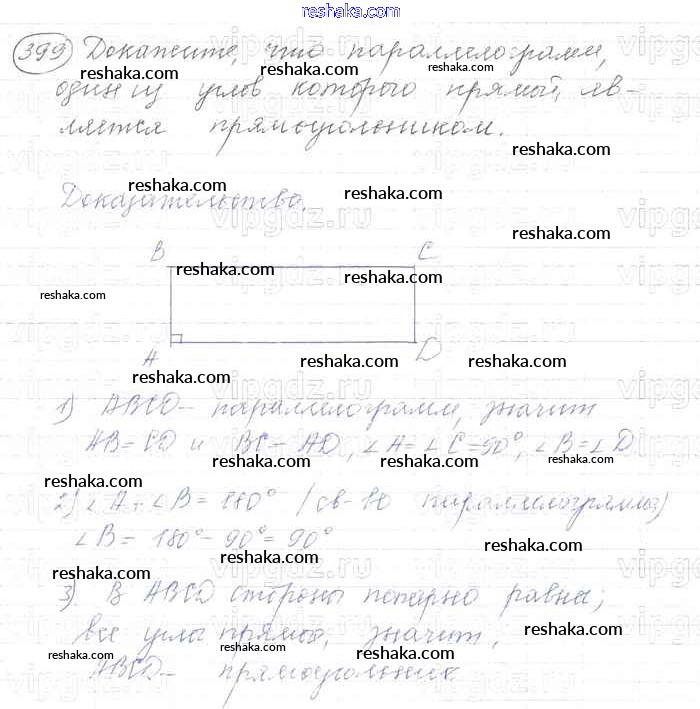 reshaka.com
399 Докажите, что параллелограмм,
reshaka.com reshaka.com reshaka.com
один из углов которого прямой, яв-
ляется прямоугольником.
reshaka.com
Доказательство.
reshaka.com reshaka.com
reshaka.com
B C
reshaka.com reshaka.com
reshaka.com
A D
reshaka.com reshaka.com
reshaka.com
1) ABCD – параллелограмм, значит
AB = CD и BC = AD, ∠A = ∠C = 90°, ∠B = ∠D
reshaka.com reshaka.com reshaka.com
reshaka.com
2) ∠A + ∠B = 180° /св-во параллелограмма)
∠B = 180° - 90° = 90°
reshaka.com
reshaka.com
3) В ABCD стороны попарно равны;
все углы прямые, значит,
reshaka.com
reshaka.com reshaka.com
ABCD – прямоугольник
reshaka.com reshaka.com
vipgdz.ru